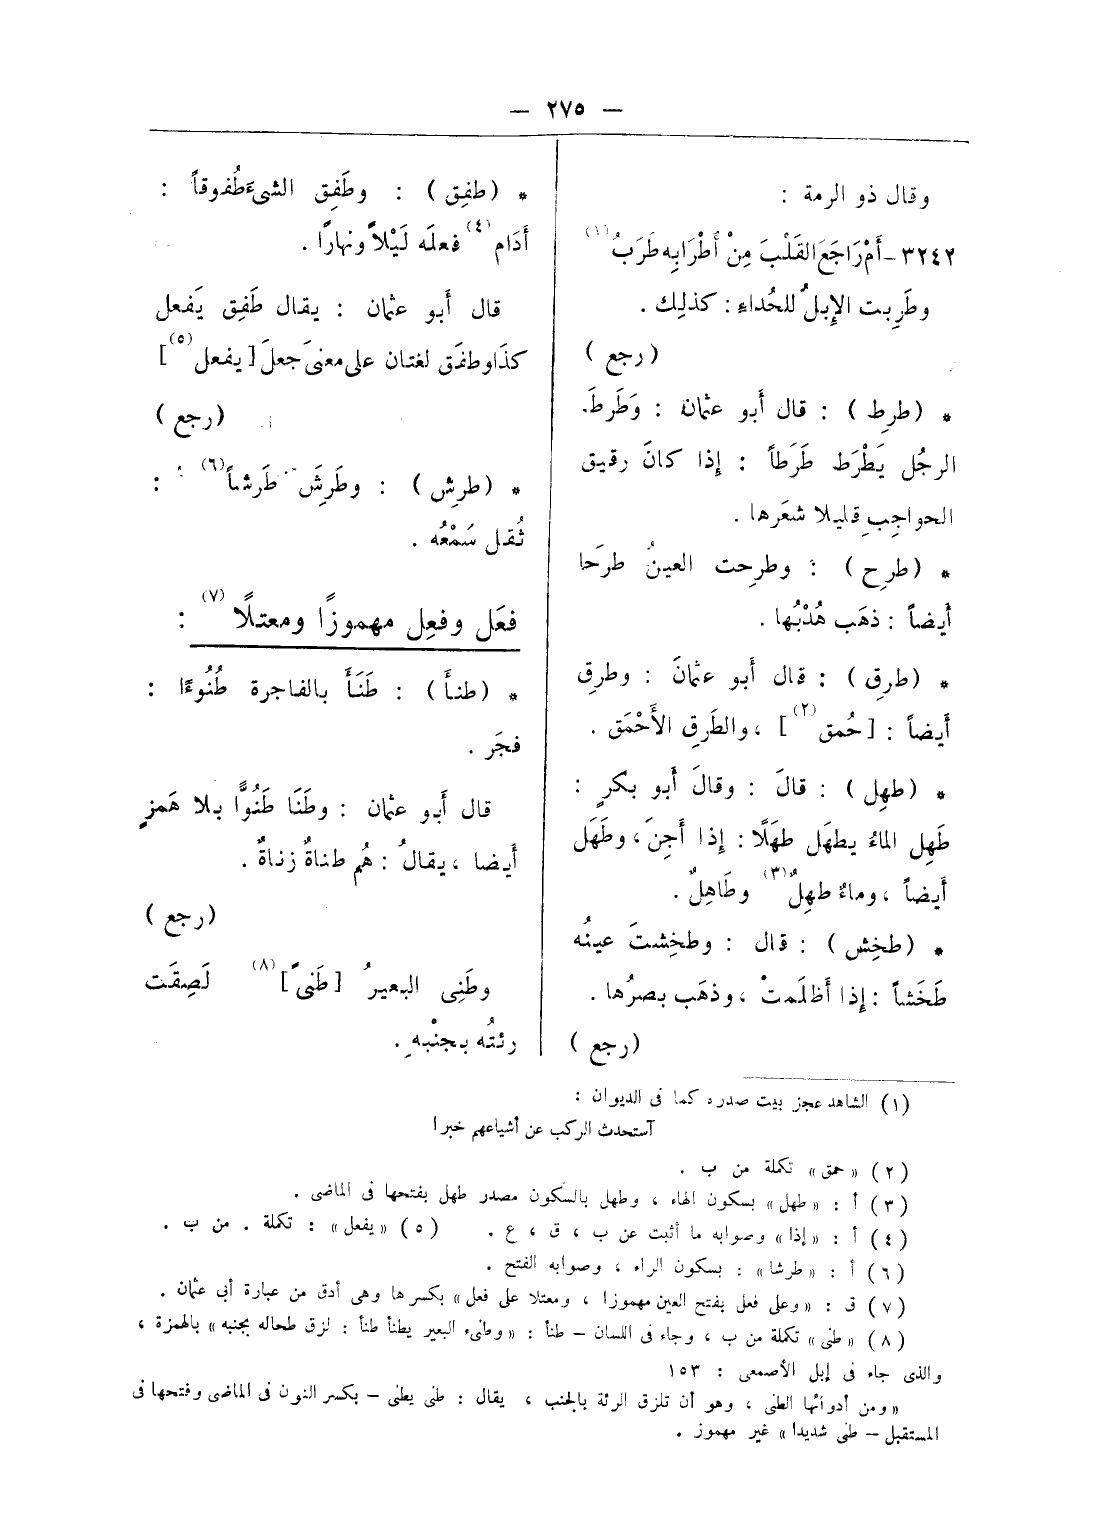 — ٢٧٥ —
وقال ذو الرمة :
٣٢٤٢ – أَمْ رَاجَعَ القَلْبَ مِنْ أَطْرَابِه طَرَبُ (١)
وطَرِبت الإِبلُ للحُداءِ : كذلِك .
( رجع )
* ( طرِط ) : قال أَبو عثمان : وَطَرطَ
الرجُل يَطْرَط طَرَطاً : إِذا كانَ رقيق
الحواجِبِ قليلا شعَرها .
* ( طرِح ) : وطرِحت العينُ طرَحَا
أَيضاً : ذهَب هُدْبُها .
* ( طرِق ) : قال أَبو عثمانَ : وطرِق
أَيضاً : [ حُمق (٢) ] ، والطَرِق الأَحْمَق .
* ( طهِل ) : قالَ : وقالَ أَبو بكرٍ :
طَهِل الماءُ يطهَل طهَلًا : إِذا أَجِنَ ، وطَهَل
أَيضاً ، وماءٌ طهِلٌ (٣) وطَاهِلٌ .
* ( طخِش ) : قال : وطخِشتَ عينُه
طَخَشاً : إِذا أَظلَمتْ ، وذهَب بصرُها .
( رجع )
* ( طفِق ) : وطَفِق الشىءَ طُفوقاً :
أَدَام (٤) فعلَه لَيْلاً ونهارًا .
قال أَبو عثمان : يقال طَفِق يَفعل
كذَا وطفَق لغتان على معنىَ جعلَ [ يفعل (٥) ]
( رجع )
* ( طرِش ) : وطَرِشَ طَرشاً (٦) :
ثُقل سَمْعُه .
فعَل وفعِل مهموزًا ومعتلًا (٧) :
* ( طنأَ ) : طَنَأَ بالفاجرة طُنُوءًا :
فجَر .
قال أَبو عثمان : وطَنَا طَنُوًّا بلا هَمزٍ
أَيضا ، يقالُ : هُم طناةٌ زناةٌ .
( رجع )
وطَنِى البعيرُ [ طَنىً ] (٨) لَصِقَت
رئتُه بجنْبهِ .
(١) الشاهد عجز بيت صدره كما فى الديوان :
آستحدث الركب عن أشياعهم خبرا
(٢) « حمق » تكملة من ب .
(٣) أ : « طهل » بسكون الهاء ، وطهل بالسكون مصدر طهل بفتحها فى الماضى .
(٤) أ : « إذا » وصوابه ما أثبت عن ب ، ق ، ع . (٥) « يفعل » : تكملة . من ب .
(٦) أ : « طرشا » : بسكون الراء ، وصوابه الفتح .
(٧) ق : « وعلى فعل بفتح العين مهموزا ، ومعتلا على فعل » بكسرها وهى أدق من عبارة أبى عثمان .
(٨) « طنى » تكملة من ب ، وجاء فى اللسان – طنأ : « وطنىء البعير يطنأ طنأ : لزق طحاله بجنبه » بالهمزة ،
والذى جاء فى إبل الأصمعى : ١٥٣
« ومن أدوائها الطنى ، وهو أن تلزق الرئة بالجنب ، يقال : طنى يطنى – بكسر النون فى الماضى وفتحها فى
المستقبل – طنى شديدا » غير مهموز .